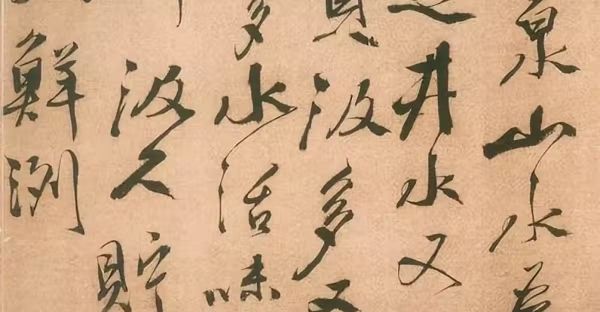 泉山水為
之井水又
貴汲多又
多水活味
汲久貯
鮮洌